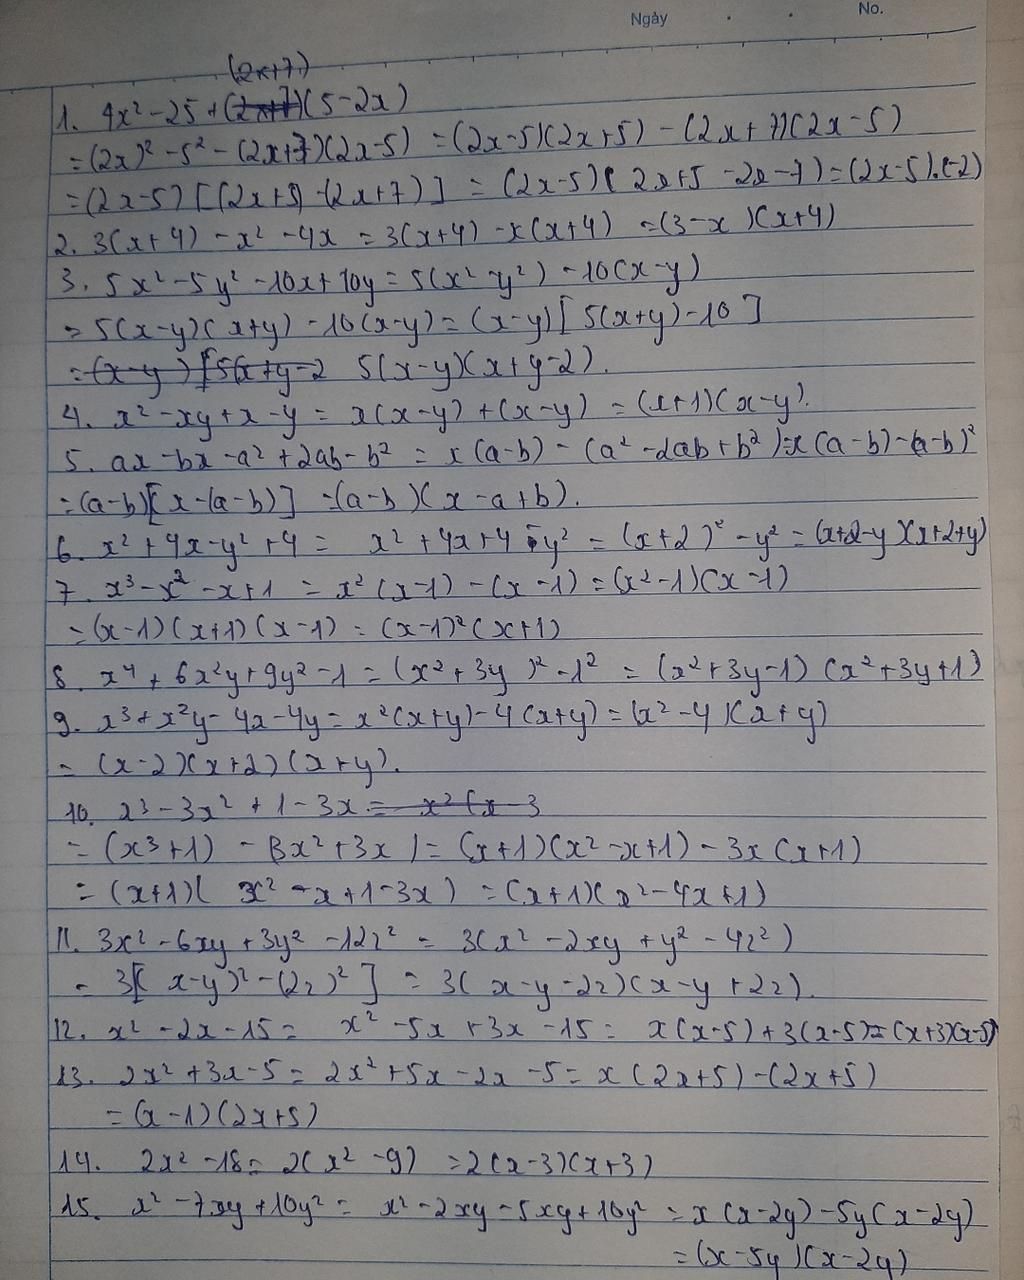 Ngày No.
(2x+7)
1. 4x² - 25 + (2x+7)(5-2x)
= (2x)² - 5² - (2x+7)(2x-5) = (2x-5)(2x+5) - (2x+7)(2x-5)
= (2x-5)[(2x+5) - (2x+7)] = (2x-5)(2x+5-2x-7) = (2x-5).(-2)
2. 3(x+4) - x² - 4x = 3(x+4) - x(x+4) = (3-x)(x+4)
3. 5x² - 5y² - 10x + 10y = 5(x² - y²) - 10(x-y)
= 5(x-y)(x+y) - 10(x-y) = (x-y)[5(x+y) - 10]
= (x-y)[5(x+y-2 5(x-y)(x+y-2).
4. x² - xy + x - y = x(x-y) + (x-y) = (x+1)(x-y).
5. ax - bx - a² + 2ab - b² = x(a-b) - (a² - 2ab + b²) = x(a-b) - (a-b)²
= (a-b)[x-(a-b)] = (a-b)(x-a+b).
6. x² + 4x - y² + 4 = x² + 4x + 4 - y² = (x+2)² - y² = (x+2-y)(x+2+y)
7. x³ - x² - x + 1 = x²(x-1) - (x-1) = (x²-1)(x-1)
= (x-1)(x+1)(x-1) = (x-1)²(x+1)
8. x⁴ + 6x²y + 9y² - 1 = (x² + 3y)² - 1² = (x²+3y-1)(x²+3y+1)
9. x³ + x²y - 4x - 4y = x²(x+y) - 4(x+y) = (x²-4)(x+y)
= (x-2)(x+2)(x+y).
10. x³ - 3x² + 1 - 3x = x²(x-3
= (x³+1) - (3x²+3x) = (x+1)(x²-x+1) - 3x(x+1)
= (x+1)(x²-x+1-3x) = (x+1)(x²-4x+1)
11. 3x² - 6xy + 3y² - 12z² = 3(x² - 2xy + y² - 4z²)
= 3[(x-y)² - (2z)²] = 3(x-y-2z)(x-y+2z).
12. x² - 2x - 15 = x² - 5x + 3x - 15 = x(x-5) + 3(x-5) = (x+3)(x-5)
13. 2x² + 3x - 5 = 2x² + 5x - 2x - 5 = x(2x+5) - (2x+5)
= (x-1)(2x+5)
14. 2x² - 18 = 2(x² - 9) = 2(x-3)(x+3)
15. x² - 7xy + 10y² = x² - 2xy - 5xy + 10y² = x(x-2y) - 5y(x-2y)
= (x-5y)(x-2y)